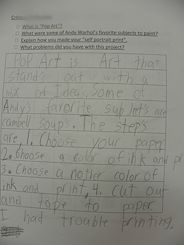 What is "Pop Art"?
What were some of Andy Warhol's favorite subjects to paint?
Explain how you made your "self portrait print".
What problems did you have with this project?
Pop Art is Art that
stands out with a
mix of Ideas. Some of
Andy's favorite are
cambell soup. The steps
are 1. Choose your paper
2. choose a color of ink and
3. Choose a nother color of
ink and print, 4. cut out
and tape to paper
I had trouble printing.